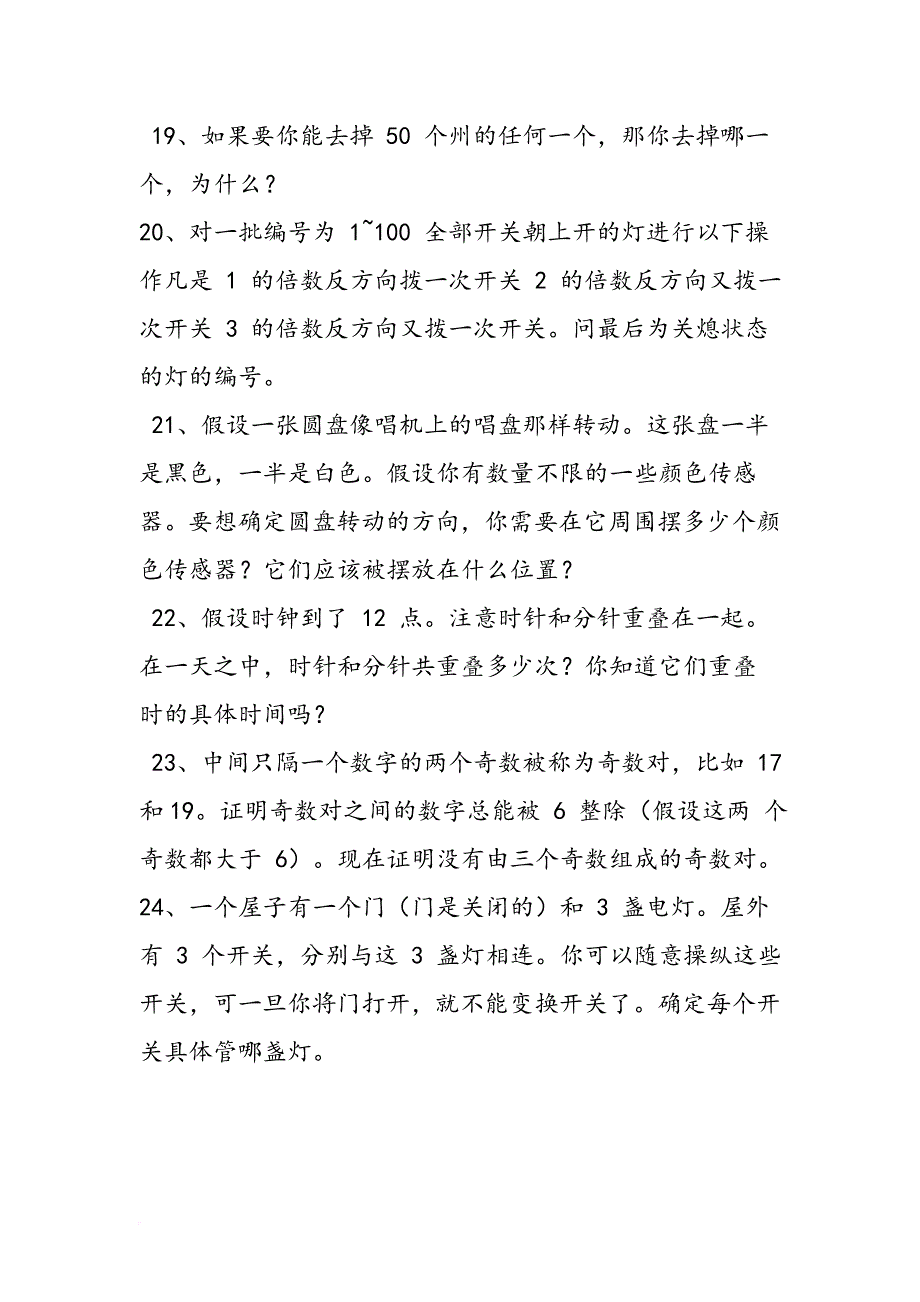 19、如果要你能去掉 50 个州的任何一个，那你去掉哪一
个，为什么？
20、对一批编号为 1~100 全部开关朝上开的灯进行以下操
作凡是 1 的倍数反方向拨一次开关 2 的倍数反方向又拨一
次开关 3 的倍数反方向又拨一次开关。问最后为关熄状态
的灯的编号。
21、假设一张圆盘像唱机上的唱盘那样转动。这张盘一半
是黑色，一半是白色。假设你有数量不限的一些颜色传感
器。要想确定圆盘转动的方向，你需要在它周围摆多少个颜
色传感器？它们应该被摆放在什么位置？
22、假设时钟到了 12 点。注意时针和分针重叠在一起。
在一天之中，时针和分针共重叠多少次？你知道它们重叠
时的具体时间吗？
23、中间只隔一个数字的两个奇数被称为奇数对，比如 17
和19。证明奇数对之间的数字总能被 6 整除（假设这两 个
奇数都大于 6）。现在证明没有由三个奇数组成的奇数对。
24、一个屋子有一个门（门是关闭的）和 3 盏电灯。屋外
有 3 个开关，分别与这 3 盏灯相连。你可以随意操纵这些
开关，可一旦你将门打开，就不能变换开关了。确定每个开
关具体管哪盏灯。